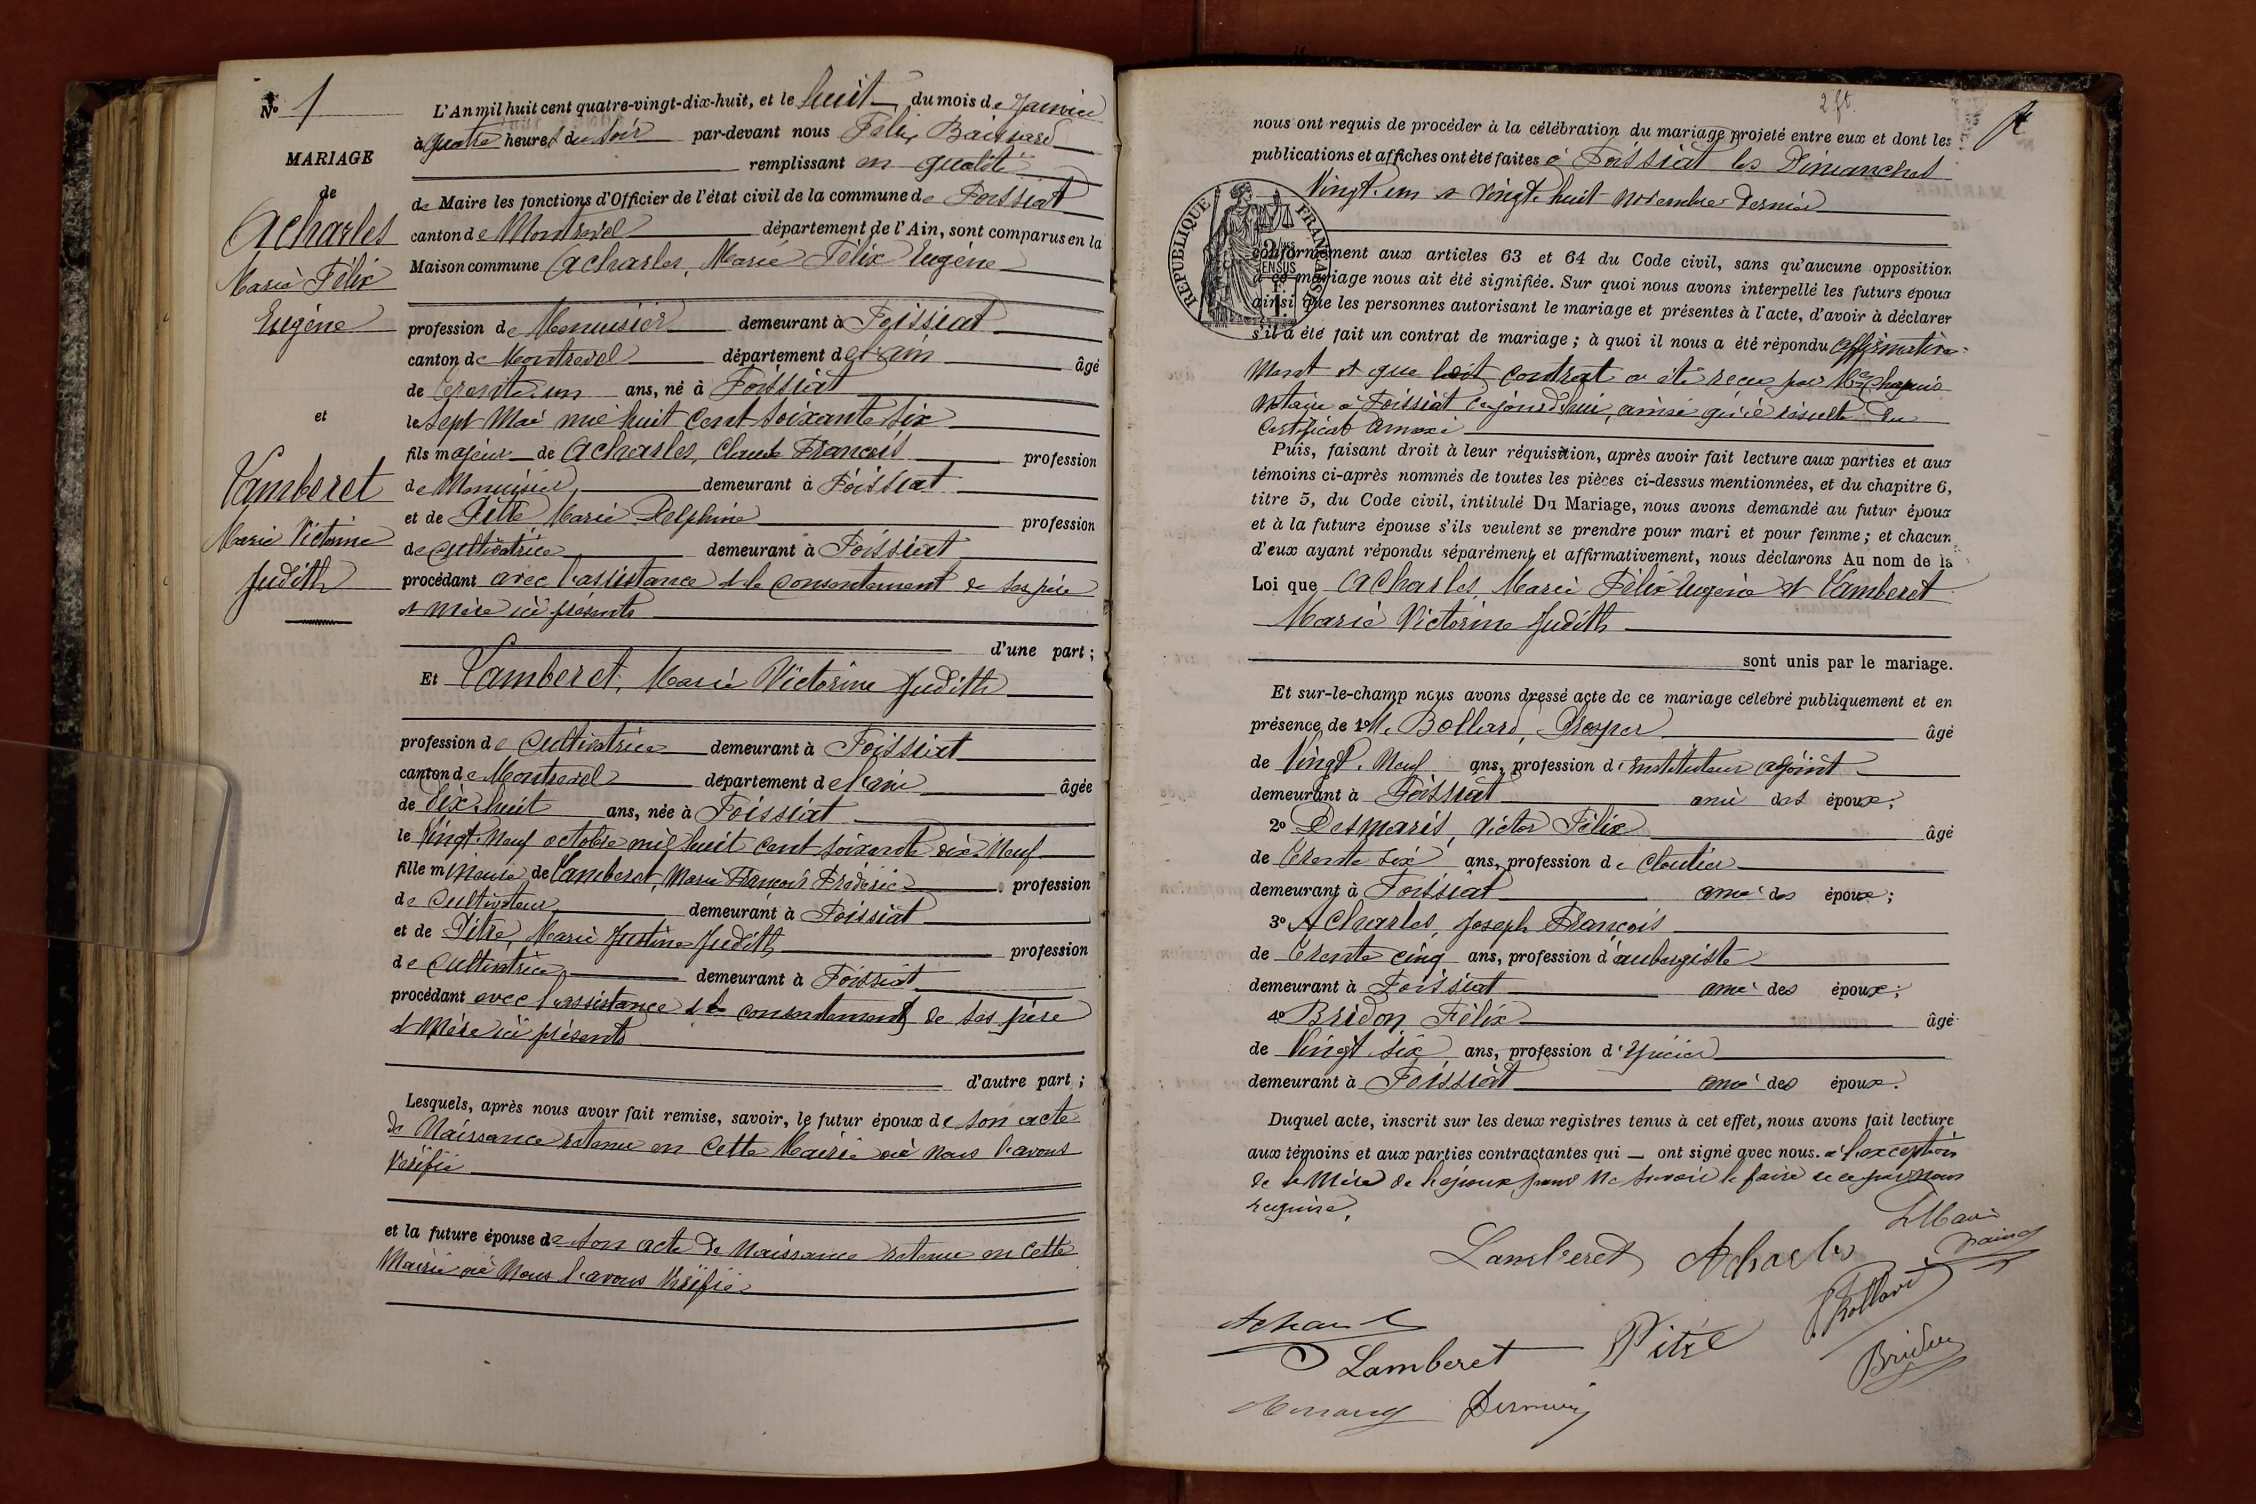 N° 1
MARIAGE
de
Acharles
Marie Félix
Eugène
et
Lamberet
Marie Victorine
Judith
L'An mil huit cent quatre-vingt-dix-huit, et le huit du mois de Janvier
à quatre heures du soir par-devant nous Félix
remplissant en qualité
de Maire les fonctions d'Officier de l'état civil de la commune de Foissiat
canton de Montrevel département de l'Ain, sont comparus en la
Maison commune Acharles, Marie Félix Eugène
profession de Menuisier demeurant à Foissiat
canton de Montrevel département de l'ain âgé
de trente un ans, né à Foissiat
le sept Mai mil huit cent soixante six
fils majeur de Acharles, Claude François profession
de Menuisier demeurant à Foissiat
et de Pitre Marie Delphine profession
de cultivatrice demeurant à Foissiat
procédant avec l'assistance et le consentement de ses père
et mère ici présents
d'une part ;
Et Lamberet, Marie Victorine Judith
profession de cultivatrice demeurant à Foissiat
canton de Montrevel département de l'ain âgée
de dix huit ans, née à Foissiat
le vingt-neuf octobre mil huit cent soixante dix-neuf
fille mineure de Lamberet, Marie François Frédéric profession
de cultivateur demeurant à Foissiat
et de Pitre, Marie Justine Judith profession
de cultivatrice demeurant à Foissiat
procédant avec l'assistance et le consentement de ses père
et Mère ici présents
d'autre part ;
Lesquels, après nous avoir fait remise, savoir, le futur époux de son acte
de Naissance retenu en cette Mairie où nous l'avons
vérifié
et la future épouse de son acte de Naissance retenu en cette
Mairie où nous l'avons vérifié
2 ft.
nous ont requis de procéder à la célébration du mariage projeté entre eux et dont les
publications et affiches ont été faites à Foissiat les Dimanches
vingt-un et vingt-huit novembre dernier
REPUBLIQUE FRANÇAISE
conformément aux articles 63 et 64 du Code civil, sans qu'aucune opposition
à ce mariage nous ait été signifiée. Sur quoi nous avons interpellé les futurs époux
ainsi que les personnes autorisant le mariage et présentes à l'acte, d'avoir à déclarer
s'il a été fait un contrat de mariage ; à quoi il nous a été répondu affirmative-
ment et que ledit contrat a été reçu par Me Chapuis
Notaire à Foissiat ce jourd'hui, ainsi qu'il résulte du
certificat annexé
Puis, faisant droit à leur réquisition, après avoir fait lecture aux parties et aux
témoins ci-après nommés de toutes les pièces ci-dessus mentionnées, et du chapitre 6,
titre 5, du Code civil, intitulé Du Mariage, nous avons demandé au futur époux
et à la future épouse s'ils veulent se prendre pour mari et pour femme ; et chacun
d'eux ayant répondu séparément et affirmativement, nous déclarons Au nom de la
Loi que Acharles Marie Félix Eugène et Lamberet
Marie Victorine Judith
sont unis par le mariage.
Et sur-le-champ nous avons dressé acte de ce mariage célébré publiquement et en
présence de 1° M. Bollard, Prosper âgé
de vingt-neuf ans, profession d'instituteur adjoint
demeurant à Foissiat ami des époux ;
2° Desmaris, Victor Félix âgé
de trente six ans, profession de cloutier
demeurant à Foissiat ami des époux ;
3° Acharles, Joseph François
de trente cinq ans, profession d'aubergiste
demeurant à Foissiat ami des époux ;
4° Bridon Félix âgé
de vingt six ans, profession d'épicier
demeurant à Foissiat ami des époux.
Duquel acte, inscrit sur les deux registres tenus à cet effet, nous avons fait lecture
aux témoins et aux parties contractantes qui — ont signé avec nous. à l'exception
de la Mère de l'époux pour ne savoir le faire de ce par nous
requise.
Lamberet Acharles
Lamberet Pitre
Bollard
Bridon